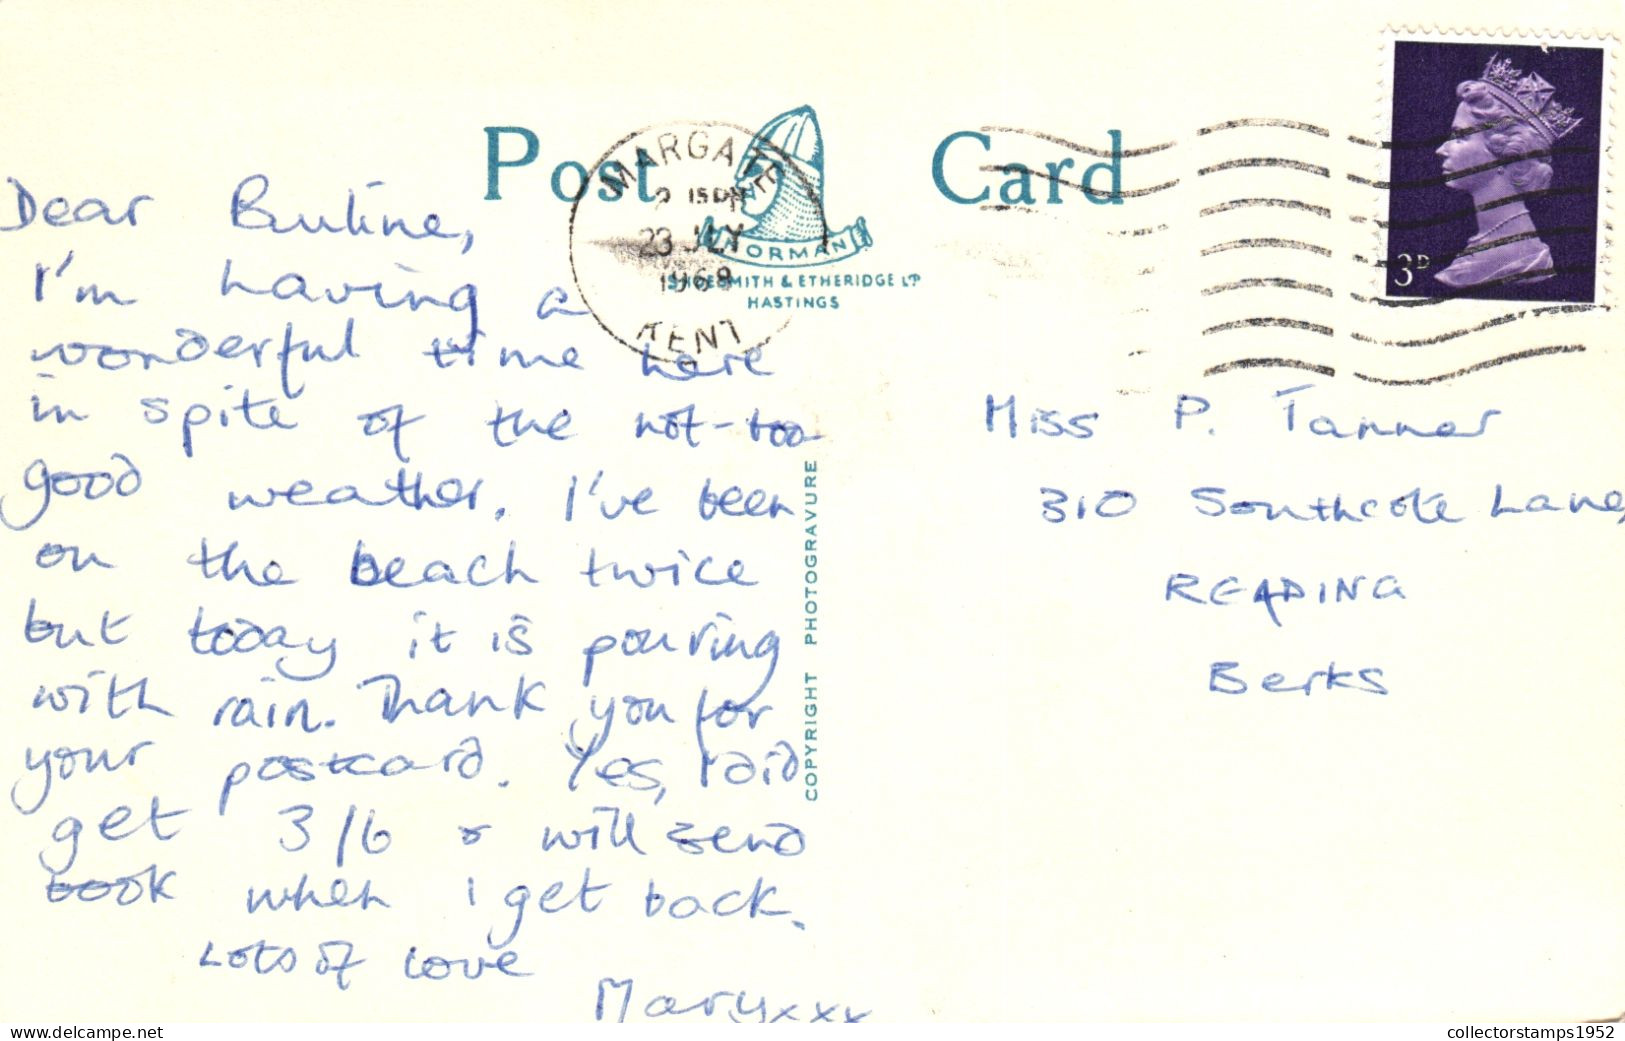 Post Card
MARGATE
2 15 PM
23 JLY
1968
KENT
NORMAN
SHOESMITH & ETHERIDGE LTD
HASTINGS
3D
Dear
I'm having a
wonderful time here
in spite of the not-too
good weather. I've been
on the beach twice
but today it is pouring
with rain. Thank you for
your postcard. Yes, I did
get 3/6 & will send
book when I get back.
Lots of love
Mary xxx
COPYRIGHT PHOTOGRAVURE
Miss P. Tanner
310 Southcote Lane,
READING
Berks
www.delcampe.net
collectorstamps1952